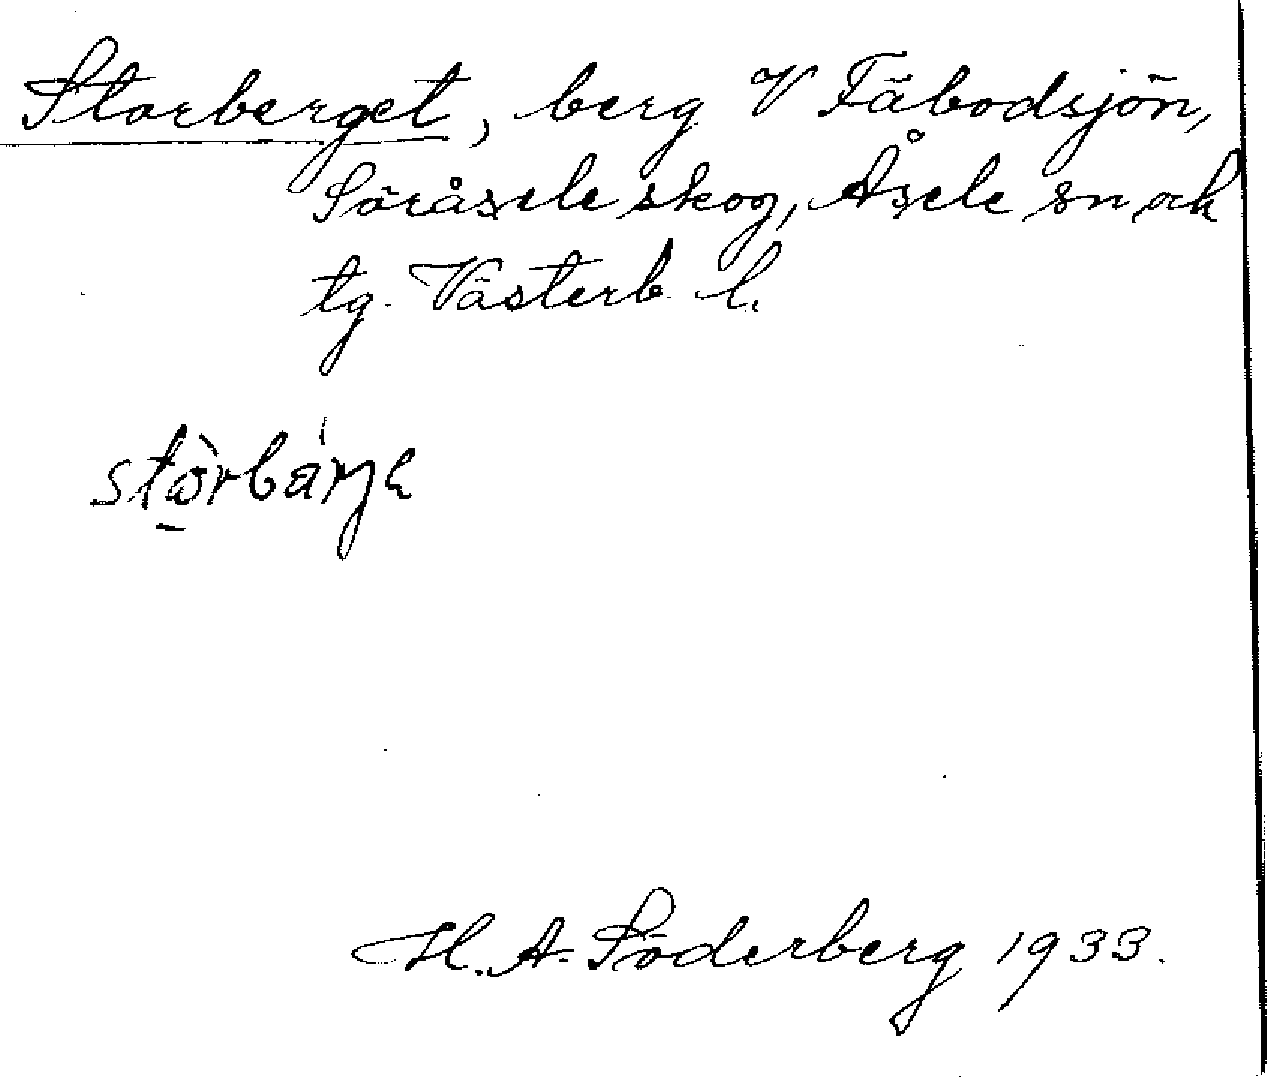 Storberget, berg V Fäbodsjön,
Söråsele skog, Åsele sn och
tg. Västerb. l.
H. A. Söderberg 1933.